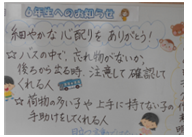 6年生へのお知らせ
細やかな心配りをありがとう!
☆バスの中で、忘れ物がないか、
後ろから出る時、注意して確認して
くれる人
☆荷物の多い子や上手に持てない子の
手助けをしてくれる人